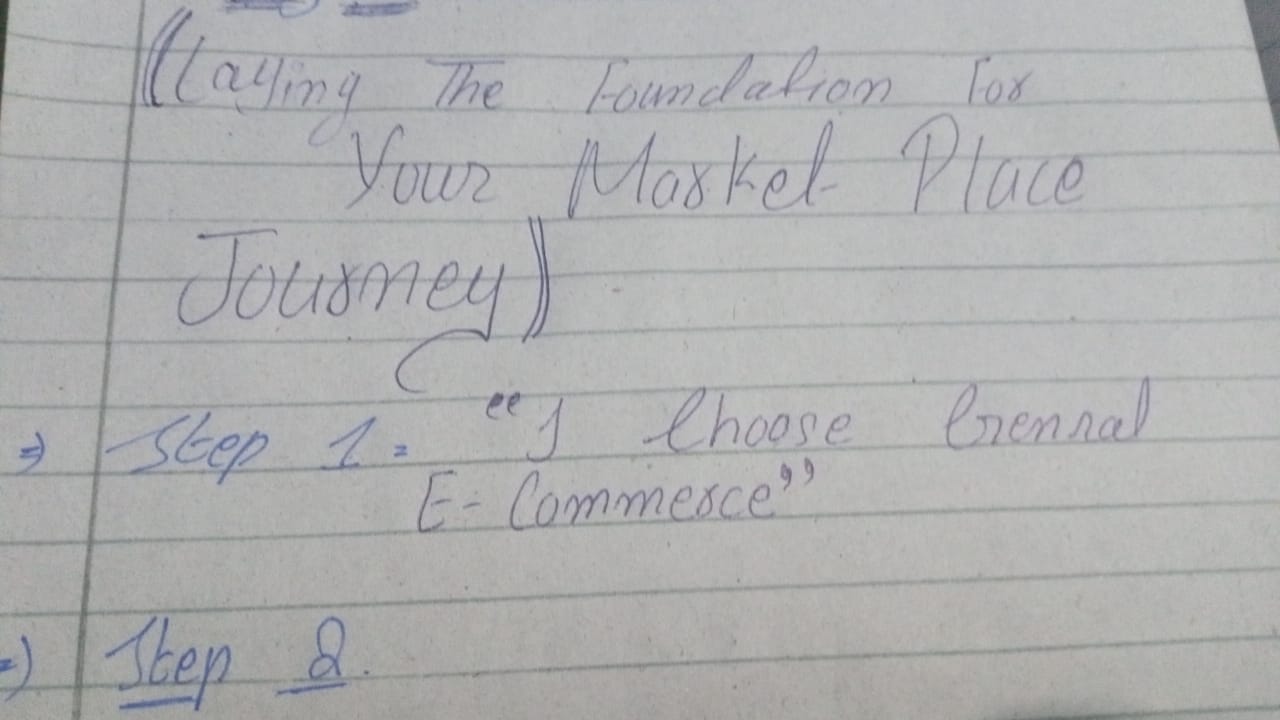 ((Laying The Foundation For
Your Market Place
Journey))
⇒ Step 1 = "I Choose Genral
E-Commerce"
⇒) Step 2.